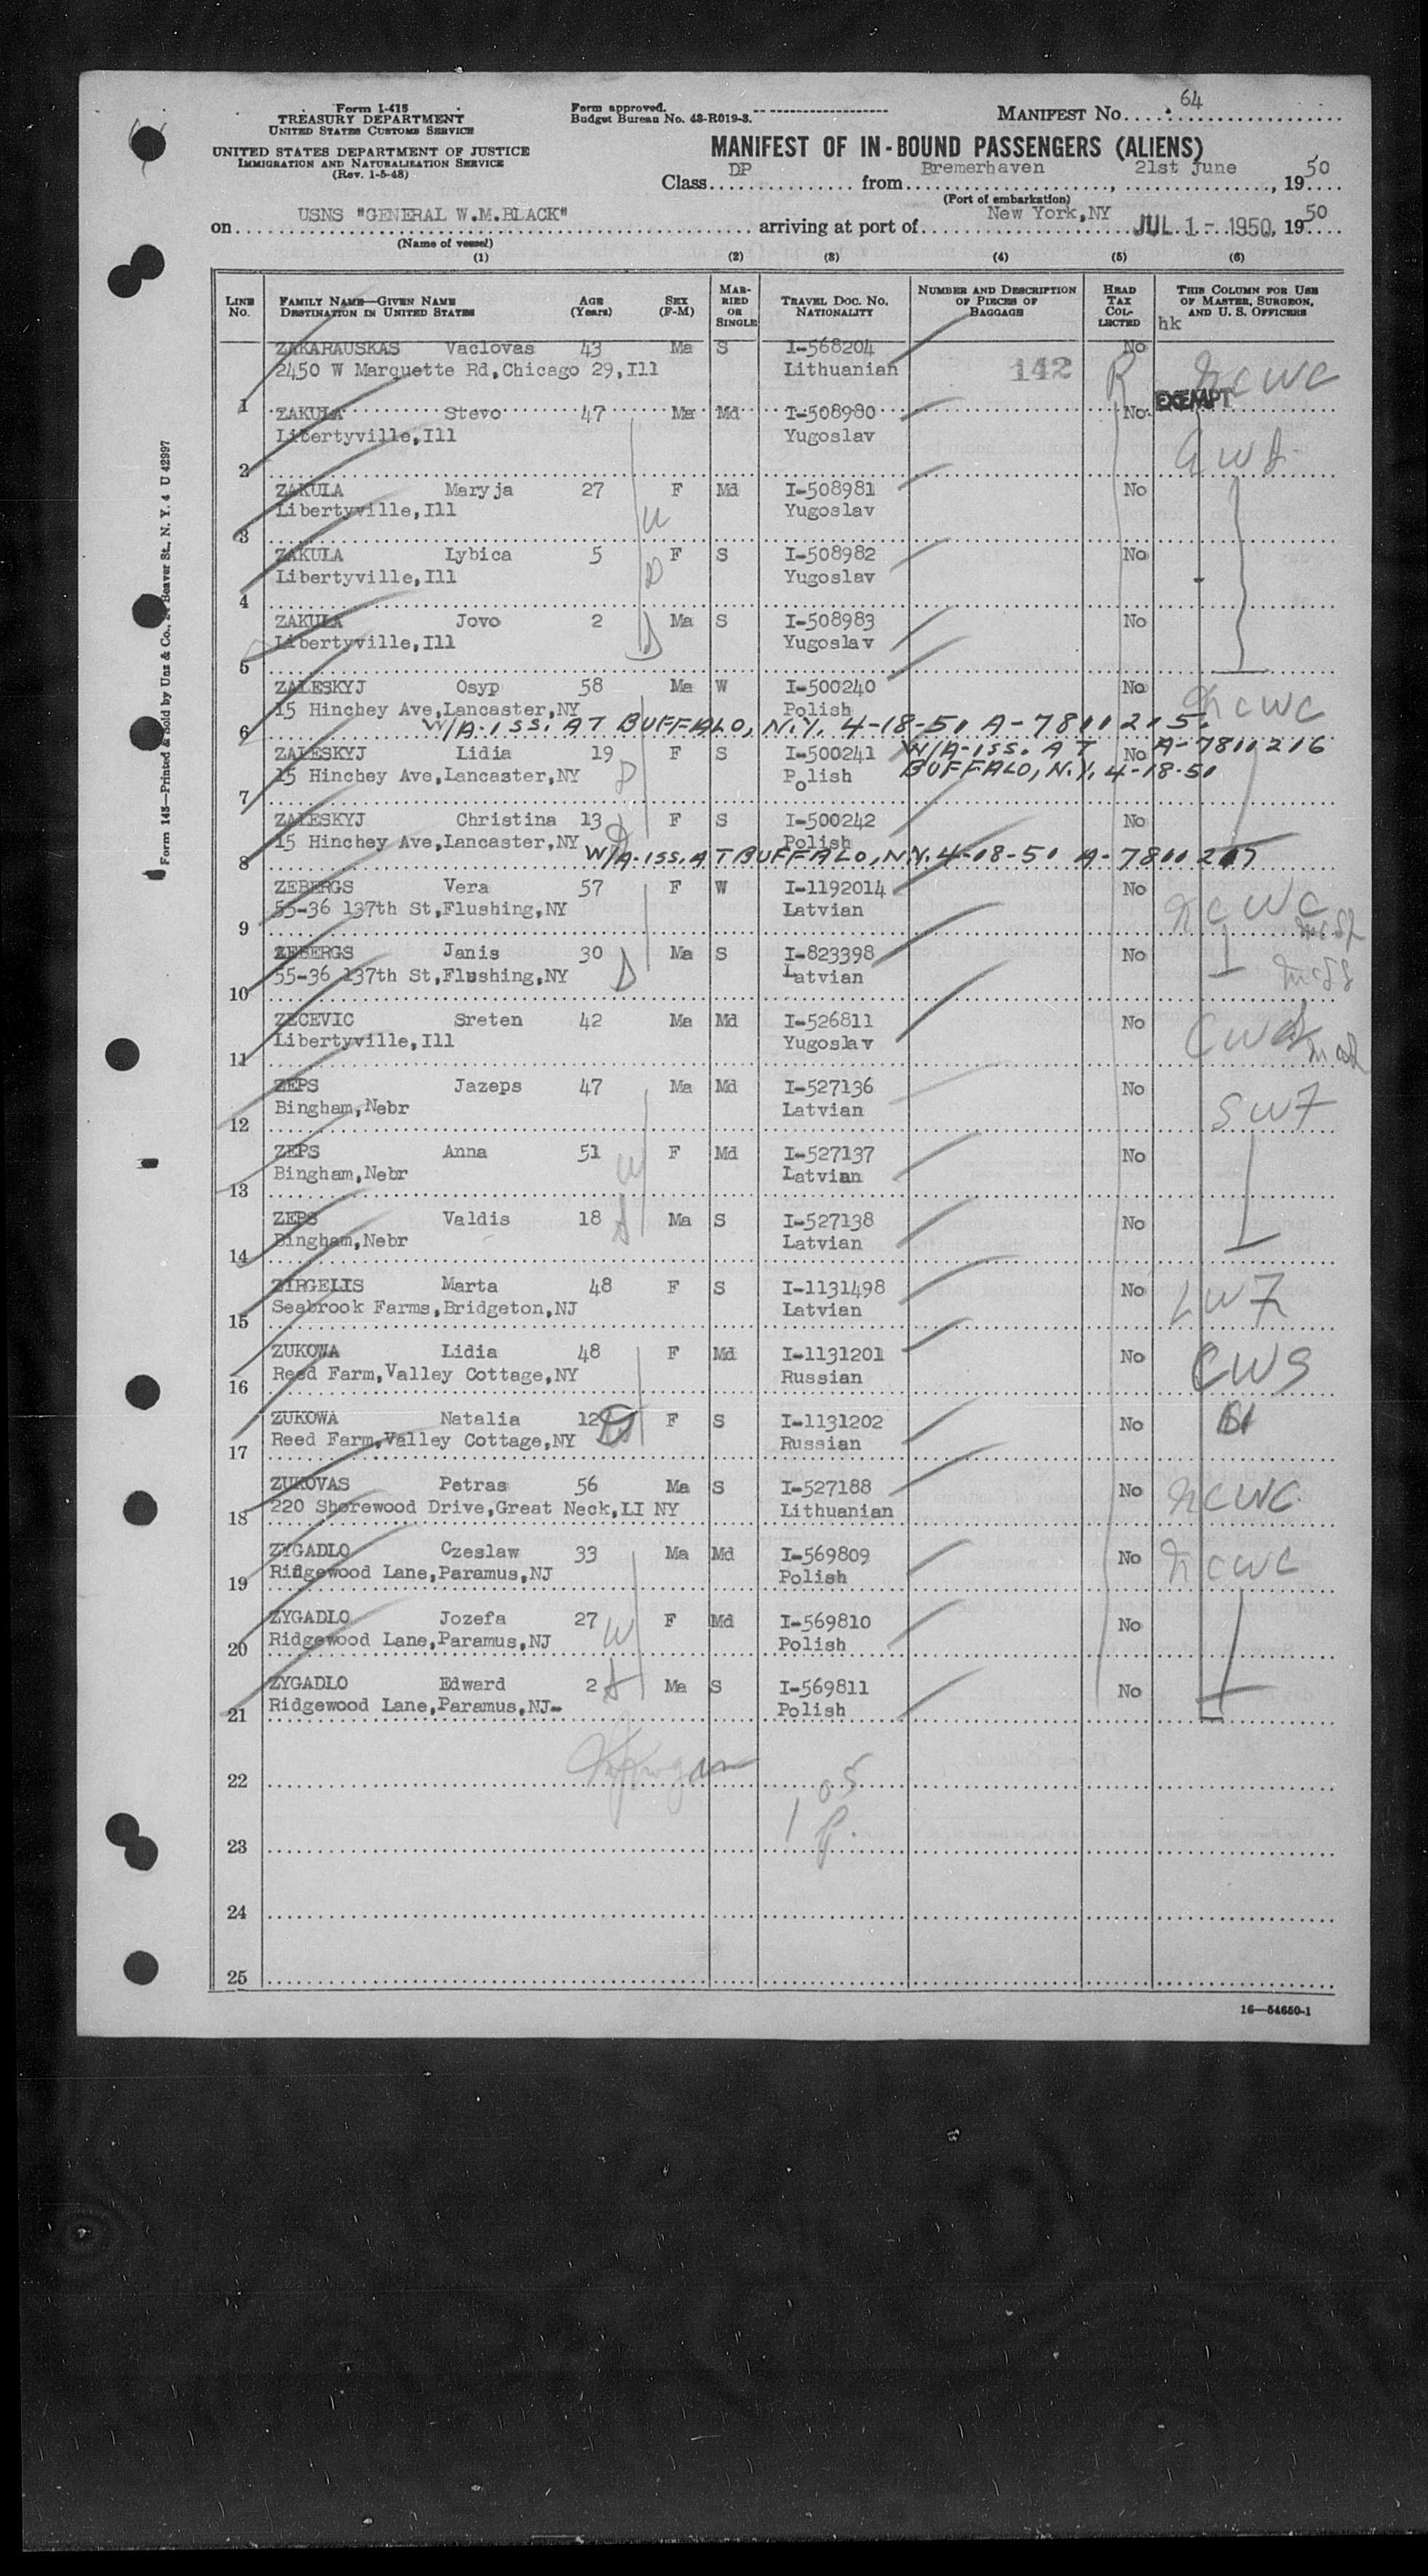 Form I-415
TREASURY DEPARTMENT
UNITED STATES CUSTOMS SERVICE
UNITED STATES DEPARTMENT OF JUSTICE
IMMIGRATION AND NATURALIZATION SERVICE
(Rev. 1-5-48)
Form approved.
Budget Bureau No. 43-R019-3.
MANIFEST No. 64
MANIFEST OF IN-BOUND PASSENGERS (ALIENS)
Class DP from Bremerhaven, 21st June, 1950
(Port of embarkation)
on USNS "GENERAL W.M.BLACK" arriving at port of New York,NY JUL 1 - 1950, 1950
(Name of vessel)
(1) (2) (3) (4) (5) (6)
LINE No. FAMILY NAME—GIVEN NAME DESTINATION IN UNITED STATES AGE (Years) SEX (F-M) MARRIED OR SINGLE TRAVEL DOC. NO. NATIONALITY NUMBER AND DESCRIPTION OF PIECES OF BAGGAGE HEAD TAX COLLECTED THIS COLUMN FOR USE OF MASTER, SURGEON, AND U. S. OFFICERS
hk
ZAKARAUSKAS Vaclovas 43 Ma S I-568204 No
2450 W Marquette Rd,Chicago 29,Ill Lithuanian 142 R NCWC
1 EXEMPT
ZAKULA Stevo 47 Ma Md I-508980 No
Libertyville,Ill Yugoslav
2
ZAKULA Maryja 27 F Md I-508981 No
Libertyville,Ill Yugoslav
3
ZAKULA Lybica 5 F S I-508982 No
Libertyville,Ill Yugoslav
4
ZAKULA Jovo 2 Ma S I-508983 No
Libertyville,Ill Yugoslav
5
ZALESKYJ Osyp 58 Ma W I-500240 No
15 Hinchey Ave,Lancaster,NY Polish NCWC
6 W/A-ISS. AT BUFFALO, N.Y. 4-18-51 A-7811215
ZALESKYJ Lidia 19 F S I-500241 W/A-ISS. AT No A-7811216
15 Hinchey Ave,Lancaster,NY Polish BUFFALO, N.Y. 4-18-51
7
ZALESKYJ Christina 13 F S I-500242 No
15 Hinchey Ave,Lancaster,NY Polish
8 W/A-ISS. AT BUFFALO, N.Y. 4-18-51 A-7811217
ZEBERGS Vera 57 F W I-1192014 No
55-36 137th St,Flushing,NY Latvian NCWC
9
ZEBERGS Janis 30 Ma S I-823398 No
55-36 137th St,Flushing,NY Latvian
10
ZECEVIC Sreten 42 Ma Md I-526811 No
Libertyville,Ill Yugoslav
11
ZEPS Jazeps 47 Ma Md I-527136 No
Bingham,Nebr Latvian SWF
12
ZEPS Anna 51 F Md I-527137 No
Bingham,Nebr Latvian
13
ZEPS Valdis 18 Ma S I-527138 No
Bingham,Nebr Latvian
14
ZIRGELIS Marta 48 F S I-1131498 No
Seabrook Farms,Bridgeton,NJ Latvian LWF
15
ZUKOWA Lidia 48 F Md I-1131201 No
Reed Farm,Valley Cottage,NY Russian CWS
16
ZUKOWA Natalia 12 F S I-1131202 No
Reed Farm,Valley Cottage,NY Russian
17
ZUKOVAS Petras 56 Ma S I-527188 No
220 Shorewood Drive,Great Neck,LI NY Lithuanian NCWC
18
ZYGADLO Czeslaw 33 Ma Md I-569809 No
Ridgewood Lane,Paramus,NJ Polish NCWC
19
ZYGADLO Jozefa 27 F Md I-569810 No
Ridgewood Lane,Paramus,NJ Polish
20
ZYGADLO Edward 2 Ma S I-569811 No
Ridgewood Lane,Paramus,NJ- Polish
21
22
23
24
25
16—54650-1
Form 145—Printed & Sold by Unz & Co., Beaver St., N. Y. 4 U 42997